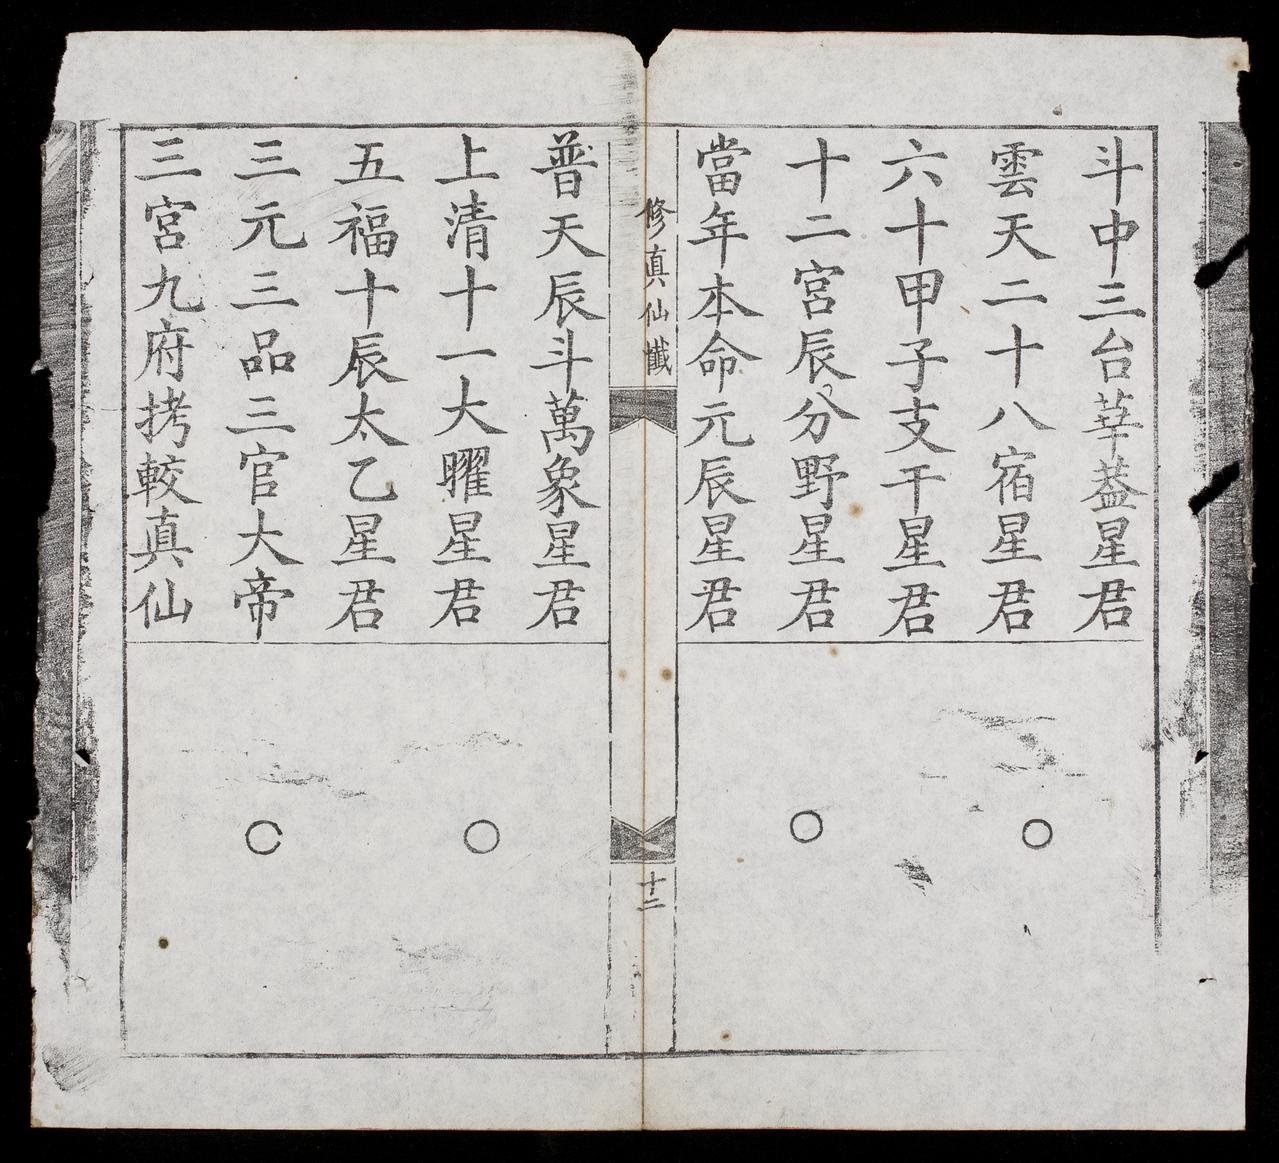 斗中三台華葢星君
雲天二十八宿星君
六十甲子支干星君
十二宮辰分野星君
當年本命元辰星君
修真仙懺
十二
普天辰斗萬象星君
上清十一大曜星君
五福十辰太乙星君
三元三品三官大帝
三宮九府拷較真仙